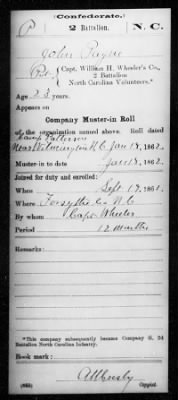 (Confederate.)
P 2 Battalion. N. C.
John Payne
Pvt., Capt. William H. Wheeler's Co.,
2 Battalion
North Carolina Volunteers.*
Age 23 years.
Appears on
Company Muster-in Roll
of the organization named above. Roll dated
Camp Patterson
Near Wilmington N.C. Jan 17, 1862.
Muster-in to date Jan 17, 1862.
Joined for duty and enrolled:
When Sept 19, 1861.
Where Forsythe Co N.C.
By whom Capt Wheeler
Period 12 months
Remarks:
*This company subsequently became Company G, 2d
Battalion North Carolina Infantry.
Book mark:
Copyist.